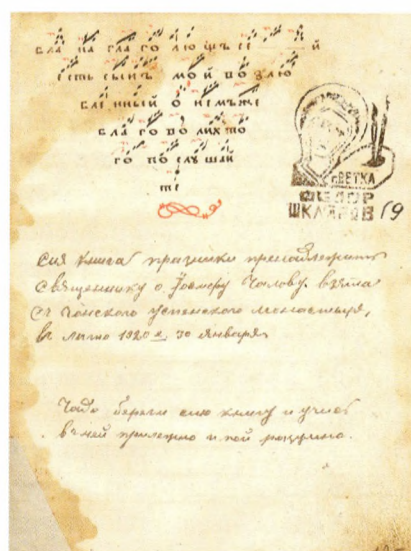 бла на гла го лю щъ се й
есть сынъ мой во злю
бле нный о немъже
бла го во лихъ то
го по слу шай
те
г. ВЕТКА
ФЕДОР
ШКЛЯРОВ 19
сия книга празники принадлежитъ
священнику о. Чалову. взята
съ успенского монастыря,
въ лѣто 1920 г. 30 января.
Чадо береги сию книгу и учись
в ней прилежно и пой разумно.